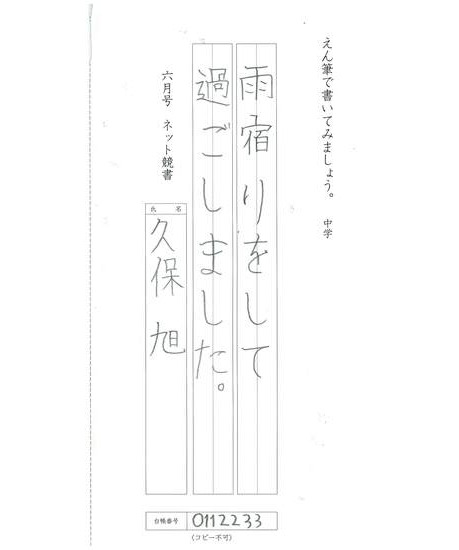 えん筆で書いてみましょう。 中学
雨宿りをして
過ごしました。
六月号 ネット競書
氏名
久保 旭
台帳番号 0112233
(コピー不可)